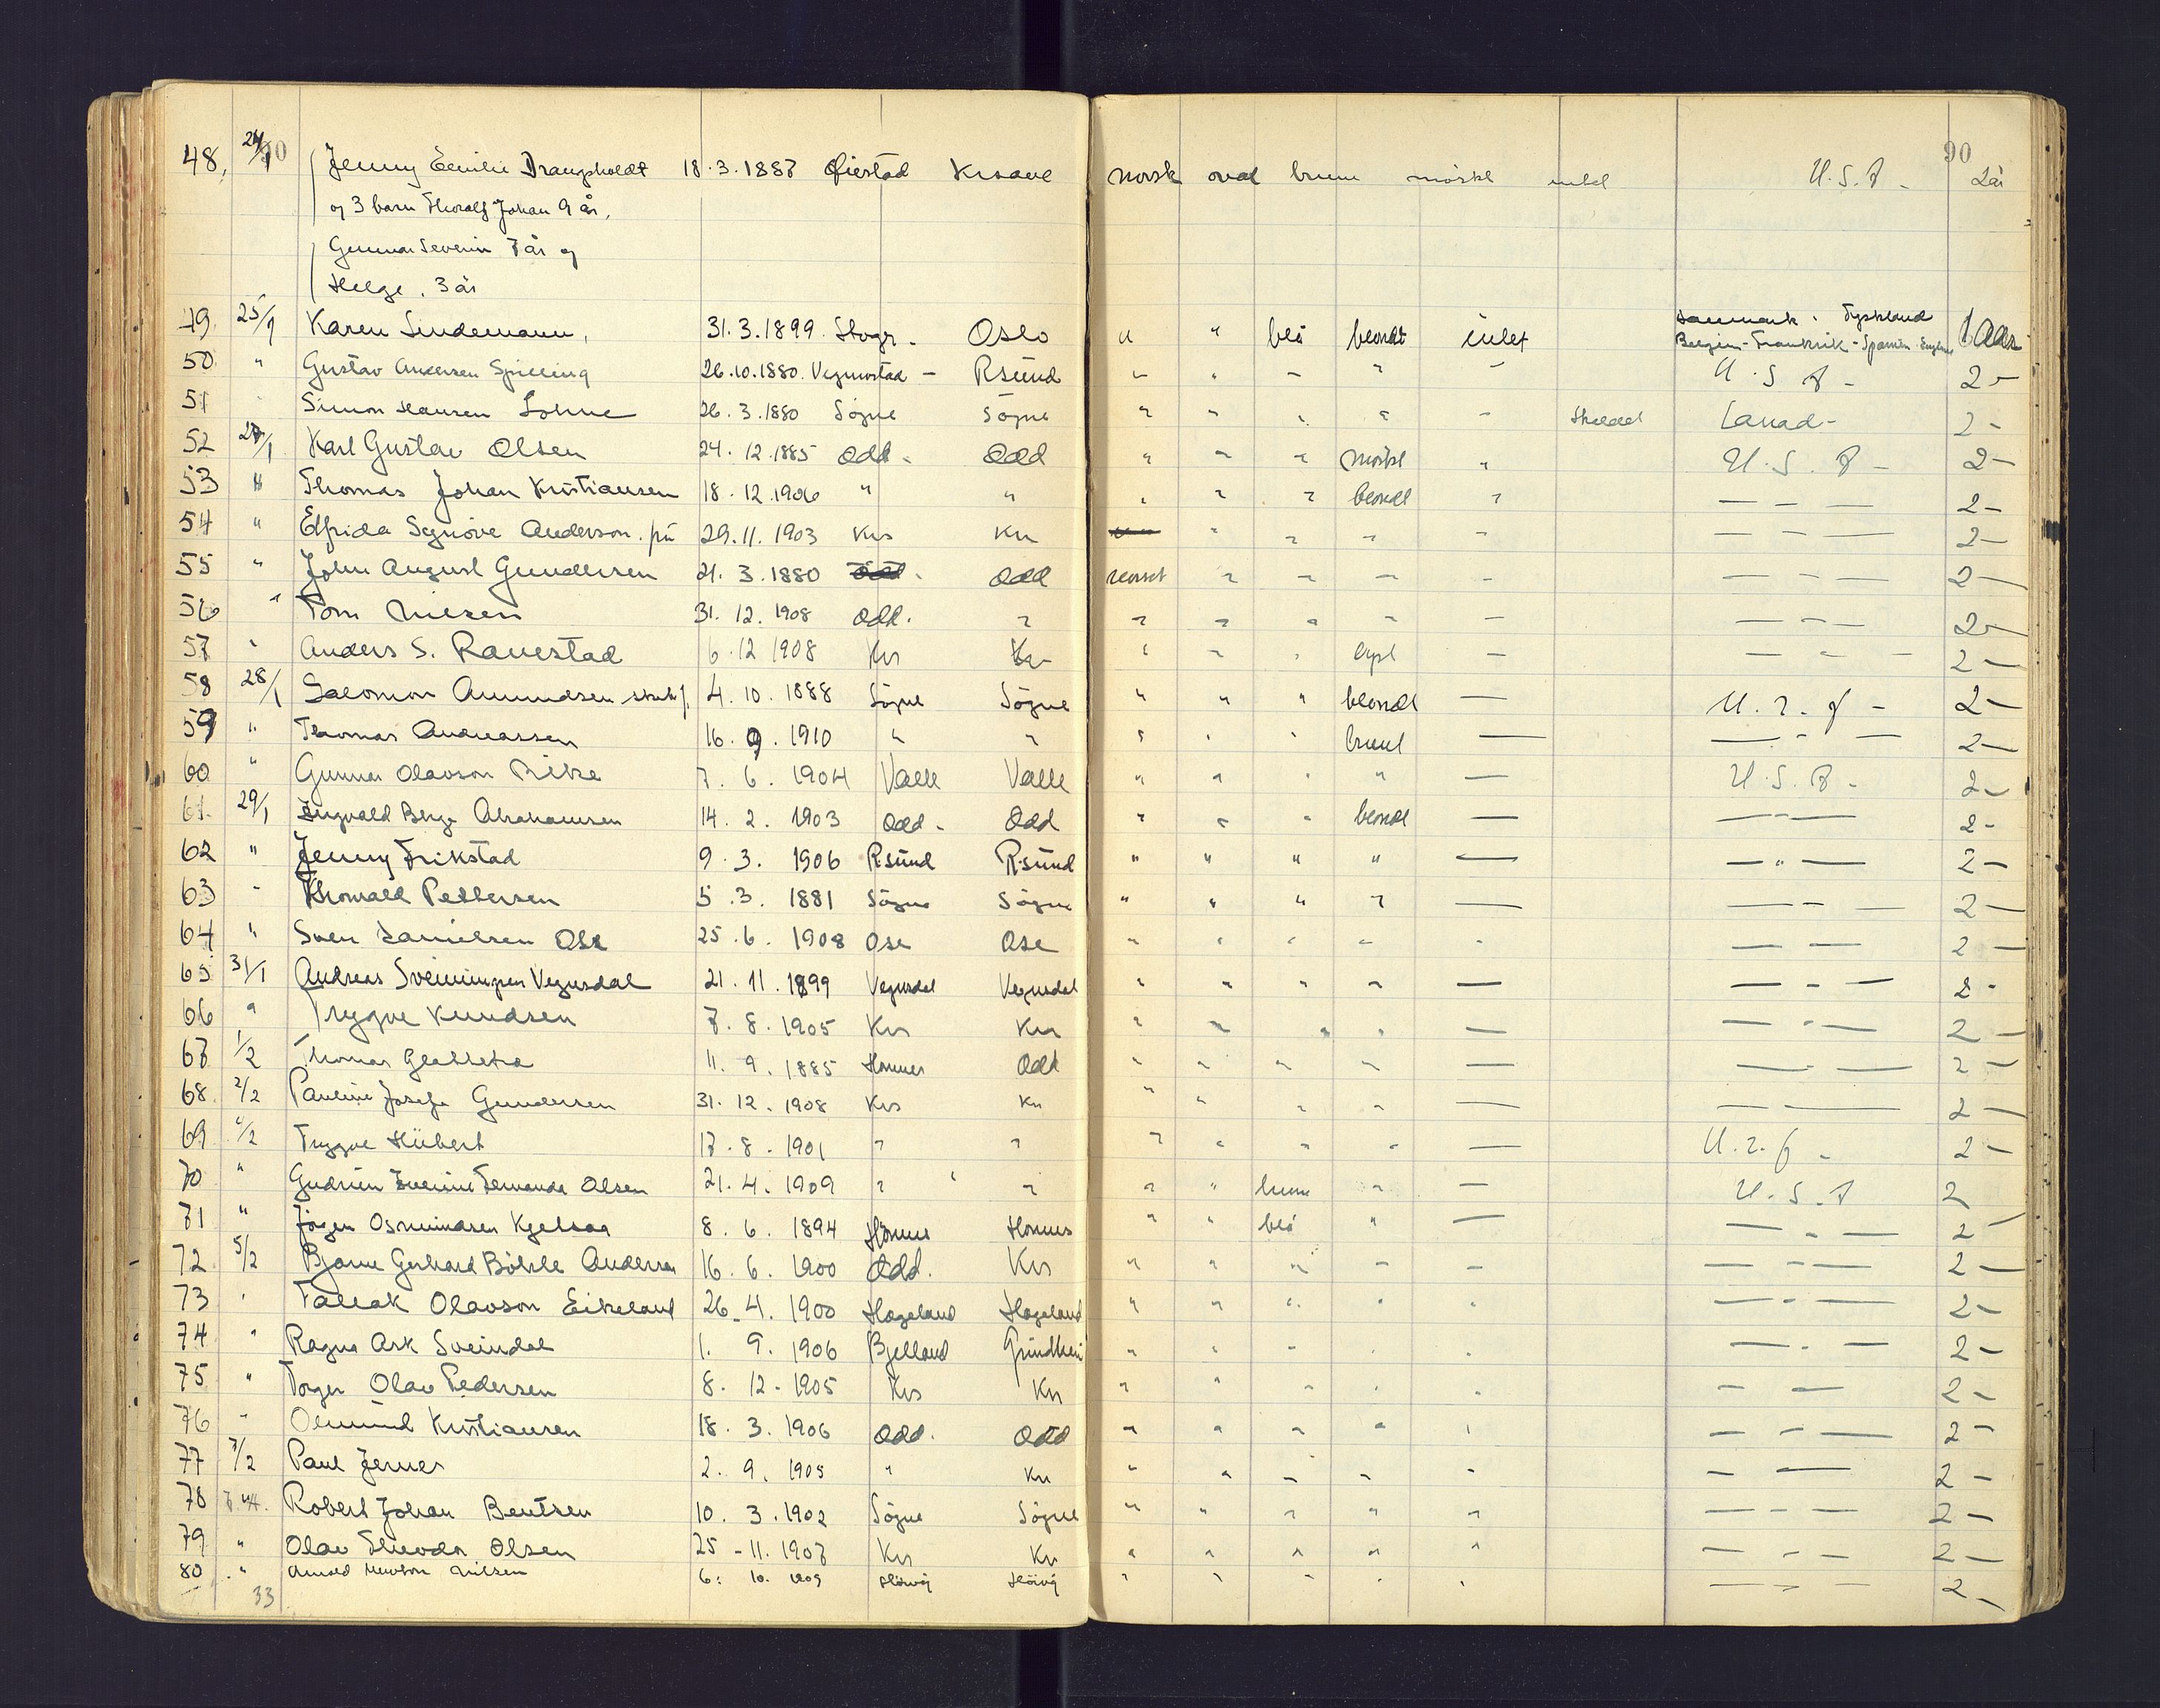 48. 24/1 Jenny Emilie Drangsholdt 18.3.1887 Øiestad Krsand norsk oval brune mörkt intet U.S.A - 2 år 90
og 3 barn Thoralf Johan 9 år,
Gunnar Severin 7 år og
Helge. 3 år
49 25/1 Karen Lindemann, 31.3.1899 Oslo " " blå blondt intet Danmark. Tyskland
Belgien - Frankrik - Spanien 1 Aar
50 " Gustav Andersen Spilling 26.10.1880. Vegusstad - Rsund U.S.A - 2 -
51 Simon Hansen Lohne 26.3.1880 Sögne Sögne Skaldet Canad - 2 -
52 27/1 Karl Gustav Olsen 24.12.1885 Odd. Odd mörkt U.S.A - 2 -
53 " Thomas Johan Kristiansen 18.12.1906 " " blondt " — 2 -
54 " Elfrida Synöve Anderson. 29.11.1903 Krs Krs — 2 -
55 " John August Gundersen 21.3.1880 Odd norsk — 2 -
56 " Tom Nilsen 31.12.1908 Odd. " — 2 -
57 " Anders S. Ravestad 6.12 1908 Krs Kr lyst — 2 -
58 28/1 Salomon Amundsen 4.10.1888 Sögne Sögne " " " blondt — U.S.A - 2 -
59 " Thomas Andreassen 16.9.1910 " " brunt — 2 -
60 " Gunnar Olavson Rike 7.6.1904 Valle Valle " " " " — U.S.A - 2 -
61 29/1 Sigvald Berge Abrahamsen 14.2.1903 Odd. Odd " blondt — 2 -
62 " Jenny Frikstad 9.3.1906 R.sund R.sund " " " " — 2 -
63 " Thorvald Pettersen 5.3.1881 Sögne Sögne " " " " — 2 -
64 " Sven Danielsen Ose 25.6.1908 Ose Ose — 2 -
65 31/1 Andreas Sveinungsen Vegusdal 21.11.1899 Vegusdal Vegusdal " " " " — 2 -
66 " Trygve Knudsen 7.8.1905 Krs Krs — 2 -
67 1/2 Thomas 11.9.1885 Hornnes Odd — 2 -
68 2/2 Pauline Josefa Gundersen 31.12.1908 Krs Kr — 2 -
69 4/2 Trygve Hübert 17.8.1901 " " — U.S.A - 2 -
70 " Gudrun Fernanda Olsen 21.4.1909 " " " " brune " — U.S.A 2
71 " Jörgen Osmundsen Kjetsaa 8.6.1894 Hornnes Hornnes " " blå " — 2 -
72 5/2 Bjarne Gerhard Anderson 16.6.1900 Odd. Krs — 2 -
73 " Tallak Olavson Eikeland 26.4.1900 Hægeland Hægeland — 2 -
74 " Ragna Ask Sveindal 1.9.1906 Bjelland Grindheim — 2 -
75 " Olav Pedersen 8.12.1905 Krs Krs — 2 -
76 " Kristiansen 18.3.1906 Odd. Odd — 2 -
77 7/2 Paul Jernes 2.9.1905 " Kr — 2 -
78 Robert Johan Bentsen 10.3.1902 Sögne Sögne — 2 -
79 " Olav Olsen 25-11.1907 Krs Kr — 2 -
80 " Nilsen 6.10.1909 Hövåg Hövåg — 2 -
33